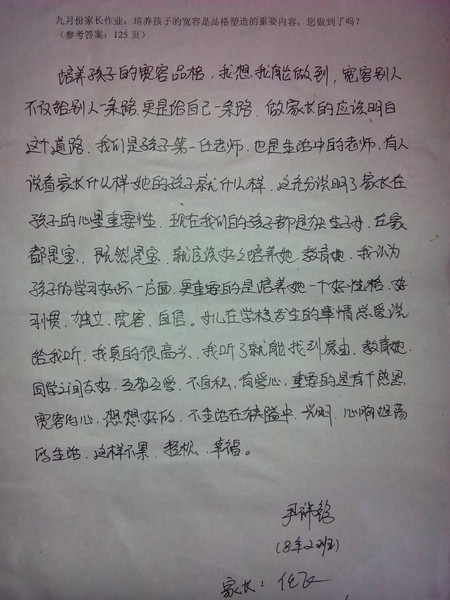 九月份家长作业：培养孩子的宽容是品格塑造的重要内容，您做到了吗？
（参考答案：125 页）
培养孩子的宽容品格，我想我能做到，宽容别人
不仅给别人一条路，更是给自己一条路，做家长的应该明白
这个道路，我们是孩子第一任老师，也是生活中的老师，有人
说看家长什么样她的孩子就什么样，这充分说明了家长在
孩子的心里重要性，现在我们的孩子都是独生子女，在家
都是宝，既然是宝，就应该好好培养她，教育她，我认为
孩子的学习好坏一方面，更重要的是培养她一个好性格，好
习惯，独立，宽容，自信。女儿在学校发生的事情总爱说
给我听，我真的很高兴，我听了就能找到原由，教育她
同学之间友好，互敬互爱，不自私，有爱心，重要的是有个感恩，
宽容的心，想想好的，不生活在狭隘中，光明，心胸坦荡
的生活，这样不累，轻松，幸福。
(8年2班)
家长：任飞